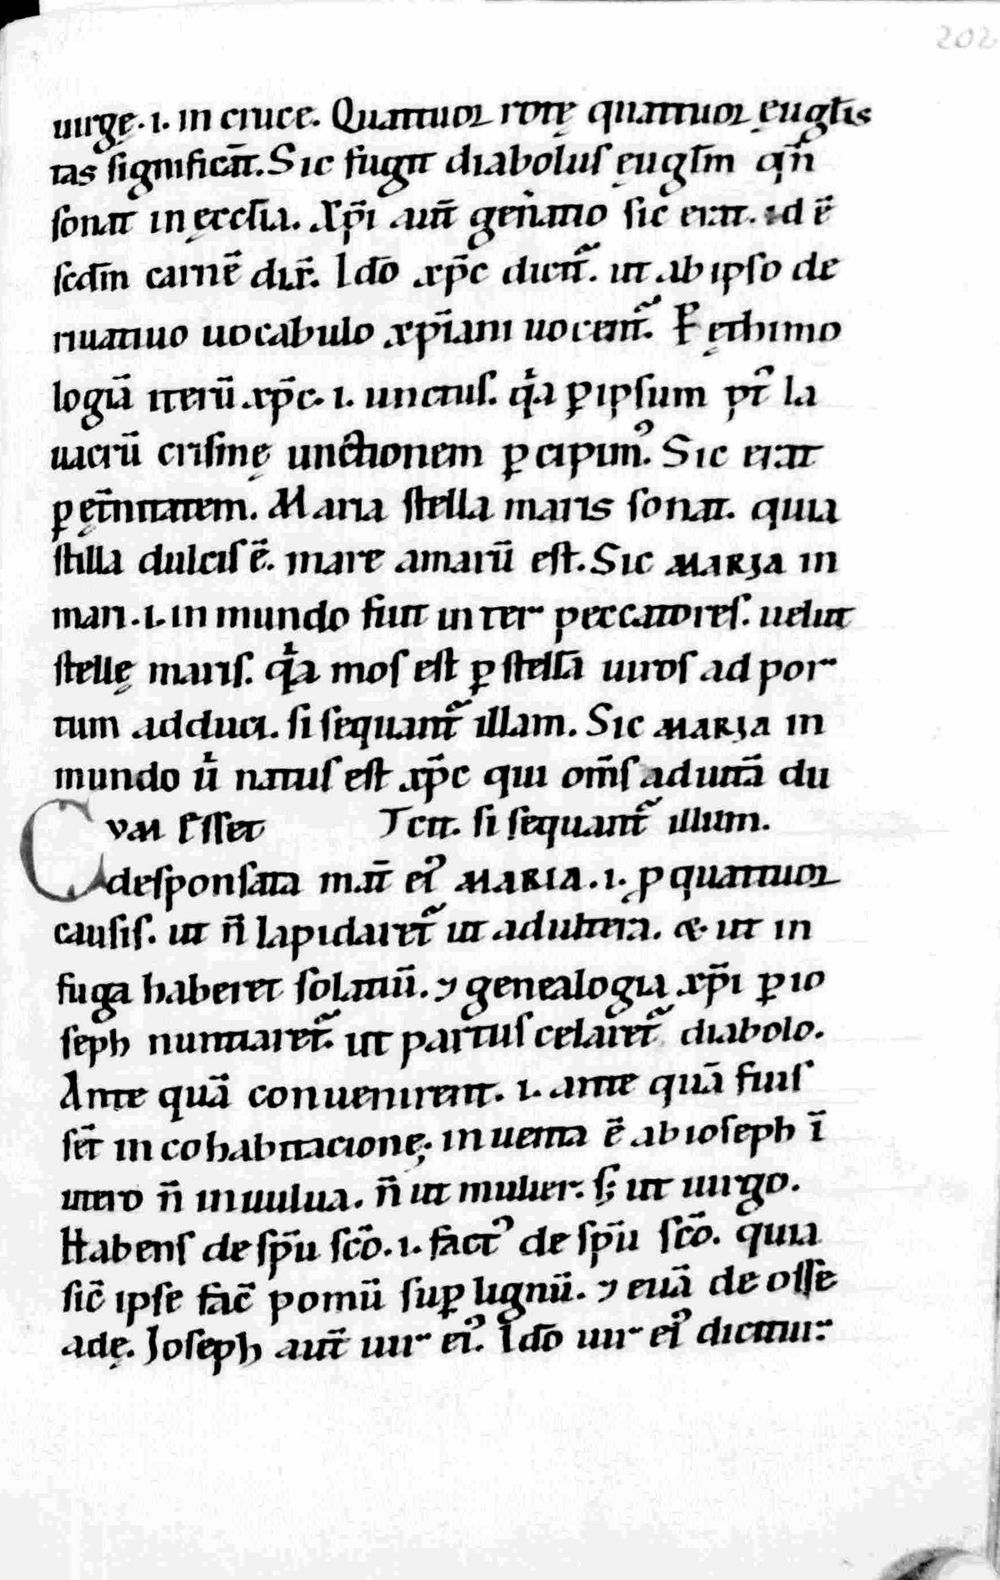 202
uirgę. i. in cruce. Quattuor rotę quattuor ęuglis
tas significat̄. Sic fugit diabolus ęuglm̄ qn̄
sonat in ęccla̅. Xp̅i aut̄ gen̅atio sic erat. id ē
scdm̄ carnē dr̄. Ido̅ xp̅c dicit᷑. ut ab ipso de
riuatiuo uocabulo xp̅iani uocent᷑. Ꝑ ęthimo
logia̅ iteru̅ xp̅c. i. unctus. qͥa ꝑ ipsum pꝰt la
uacru̅ crismę unctionem ꝑcipimꝰ. Sic erat
ꝑ ęt̅nitatem. Maria stella maris sonat. quia
stilla dulcis ē. mare amaru̅ est. Sic MARIA in
mari. i. in mundo fuit inter peccatores. uelut
stellę maris. qͥa mos est ꝑ stella̅ uiros ad por
tum adduci. si sequant᷑ illam. Sic MARIA in
mundo uͥ natus est xp̅c qui om̅s ad uita̅ du
Cum Esset cit. si sequant᷑ illum.
desponsata mat̅ eiꝰ MARIA. i. ꝓ quattuor
causis. ut n̅ lapidaret᷑ ut adultera. & ut in
fuga haberet solatiu̅. ⁊ genealogia xp̅i ꝑ io
seph nuntiaret᷑. ut partus celaret᷑ diabolo.
Ante qua̅ conuenirent. i. ante qua̅ fuis
set̅ in cohabitacionę; inuenta ē ab ioseph ī
utero n̅ in uulua. n̅ ut mulier. sꝫ ut uirgo.
Habens de sp̅u sc̅o. i. factꝰ de sp̅u sc̅o. quia
sic̅ ipse fac̅ pomu̅ suꝑ lignu̅. ⁊ eua̅ de osse
adę. Joseph aut̅ uir eiꝰ. Ido̅ uir eiꝰ dicitur